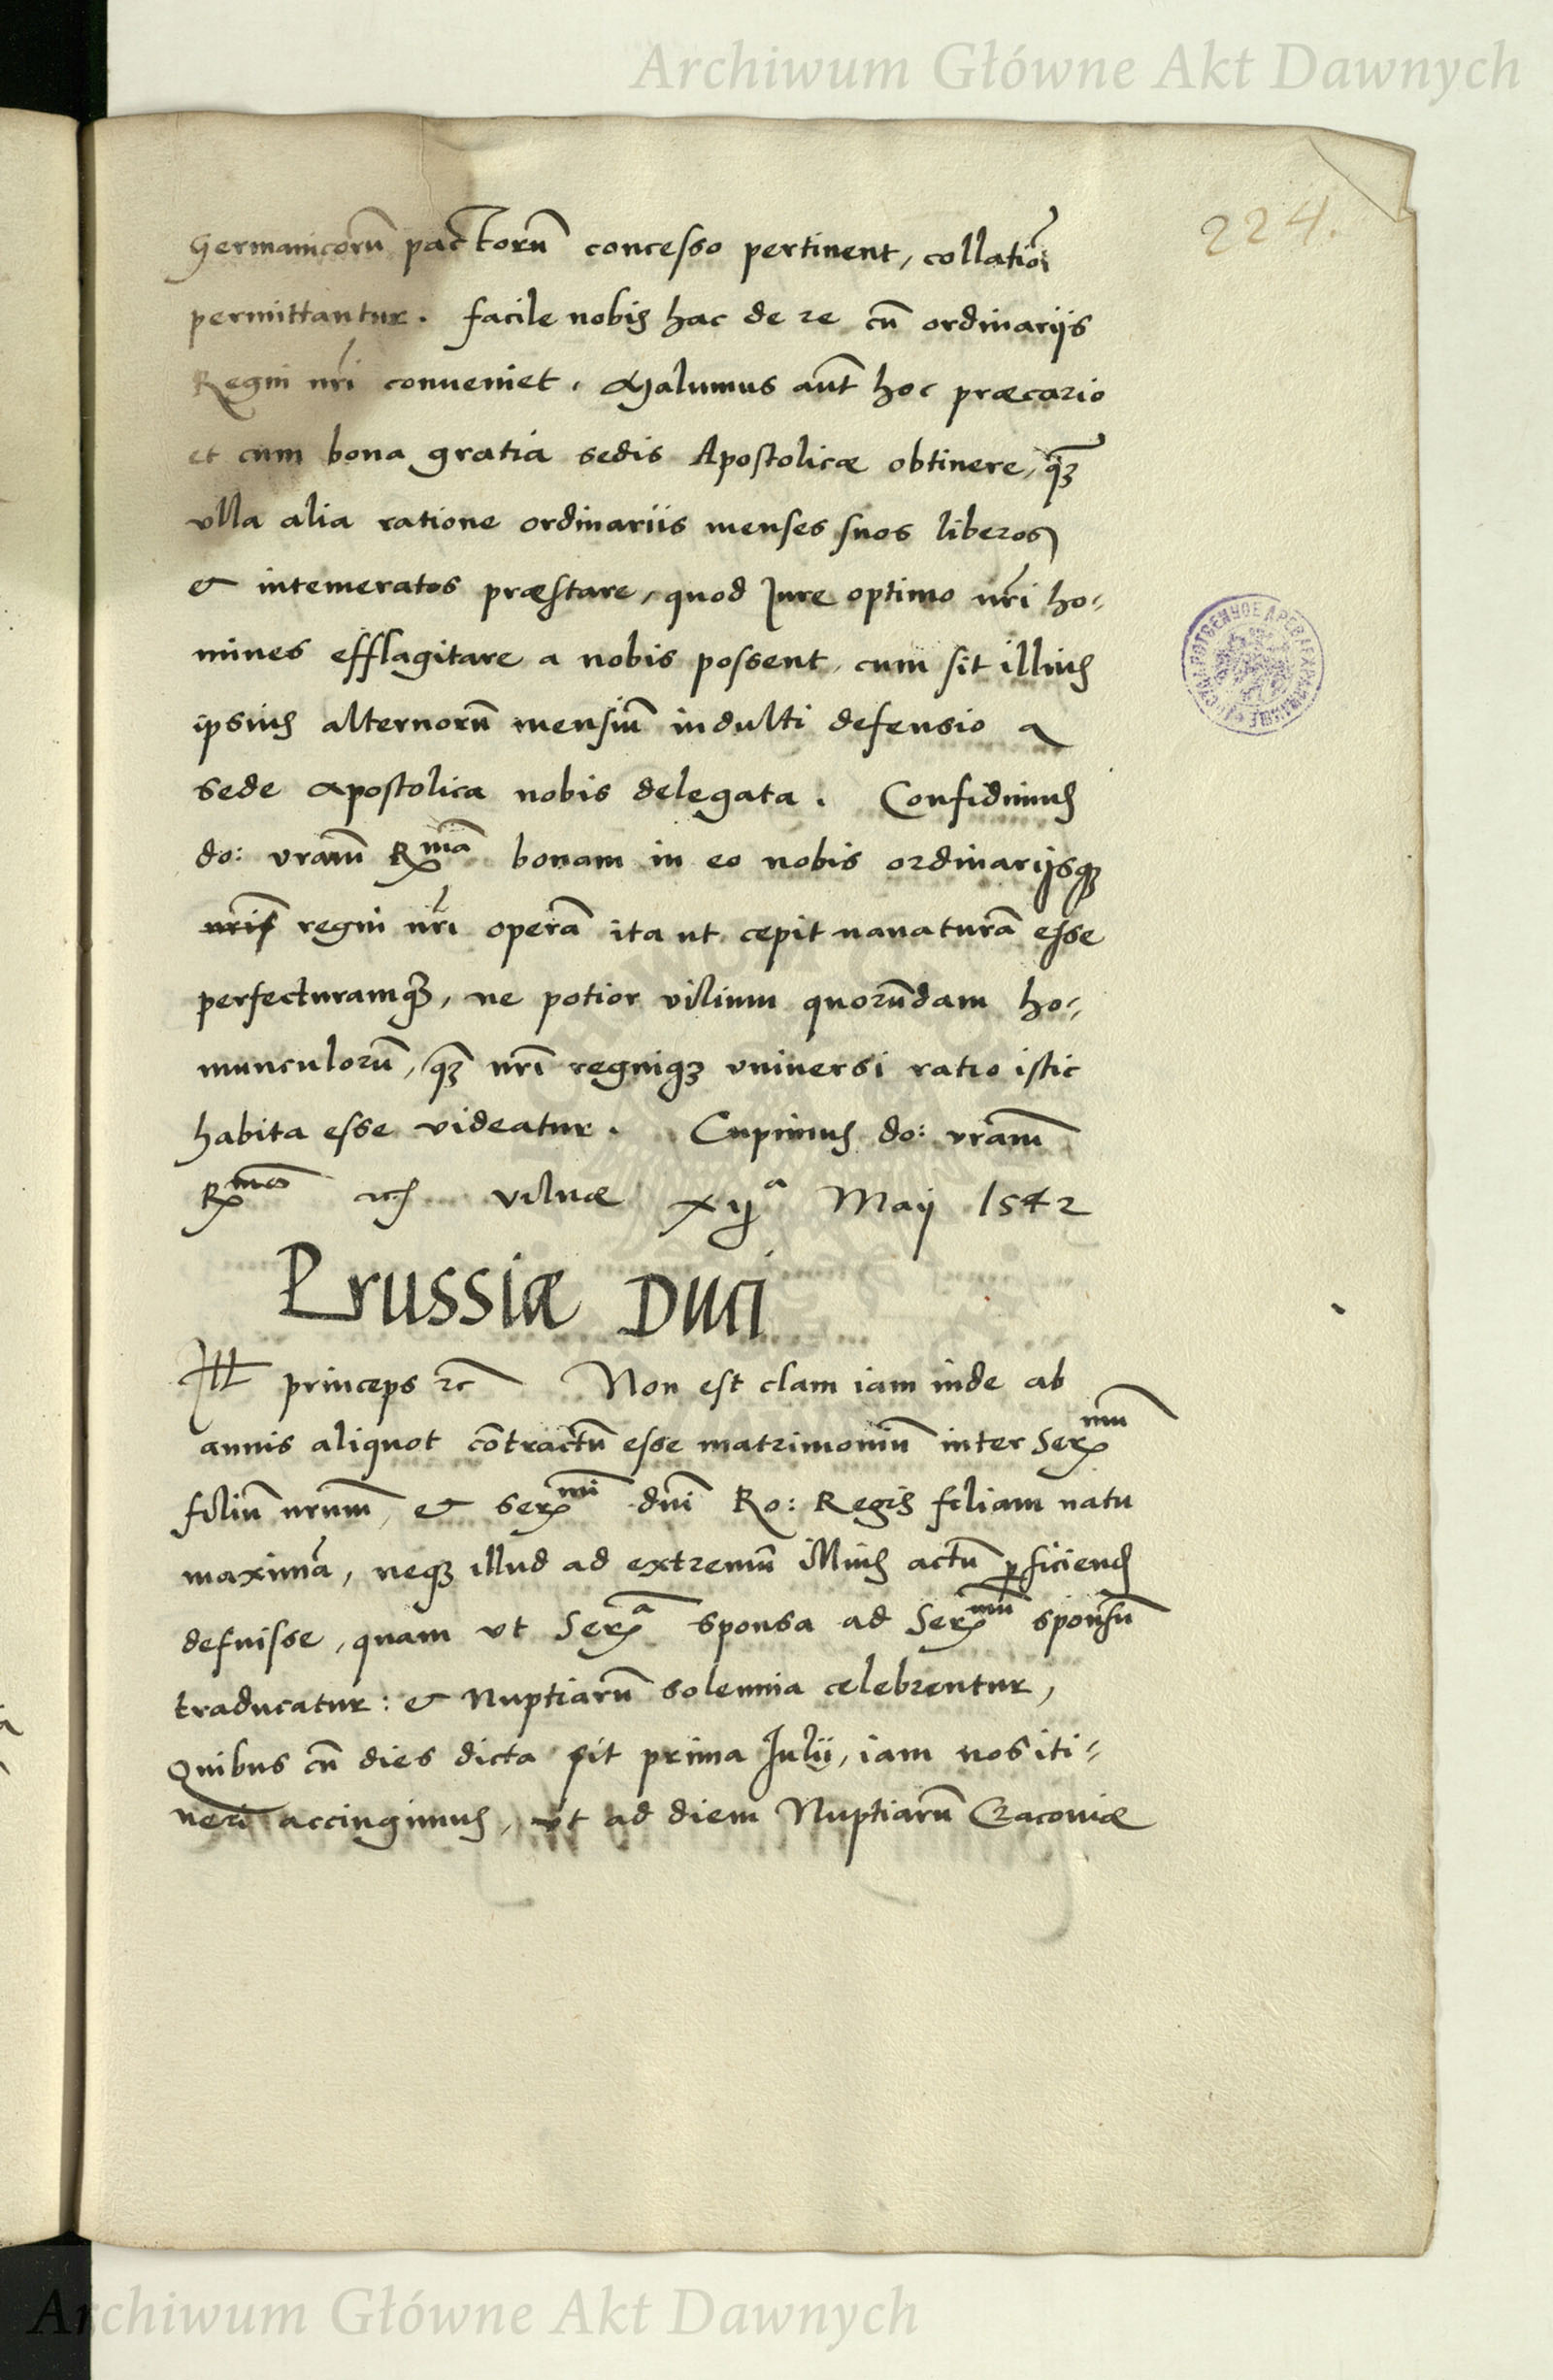 Archiwum Główne Akt Dawnych
224.
Germanicorũ pactorũ concesso pertinent, collatiõi
permittantur. facile nobis hac de re cũ ordinarijs
Regni nr̃i conueniet. Malumus aũt hoc præcario
et cum bona gratia sedis Apostolicæ obtinere, q̃ꝫ
vlla alia ratione ordinariis menses suos liberos
& intemeratos præstare, quod Jure optimo nr̃i ho-
mines efflagitare a nobis possent, cum sit illius
ipsius alternorũ mensiũ indulti defensio a
sede apostolica nobis delegata. Confidimus
do: vram̃ Rmã bonam in eo nobis ordinarijsqꝫ
nris regni nr̃i operã ita ut cepit nauaturã esse
perfecturamqꝫ, ne potior vilium quorũdam ho-
munculorũ, q̃ꝫ nr̃i regniqꝫ vniuersi ratio istic
habita esse videatur. Cupimus do: vram̃
Rmã Vilnæ xijᵃ Maij 1542
Prussiæ Duci
Ill princeps ꝛc Non est clam iam inde ab
annis aliquot cõtractũ esse matrimoniũ inter Serᵐᵘ
filiũ nrum̃, & serᵐⁱ dñi Ro: Regis filiam natu
maximã, neqꝫ illud ad extremũ illius actũ ꝑficiend
defuisse, quam vt Serᵃ sponsa ad Serᵐᵘ sponsũ
traducatur: & Nuptiarũ solemnia celebrentur,
Quibus cũ dies dicta sit prima Julii, iam nos iti-
neri accingimus, vt ad diem Nuptiarũ Cracoviæ
Archiwum Główne Akt Dawnych